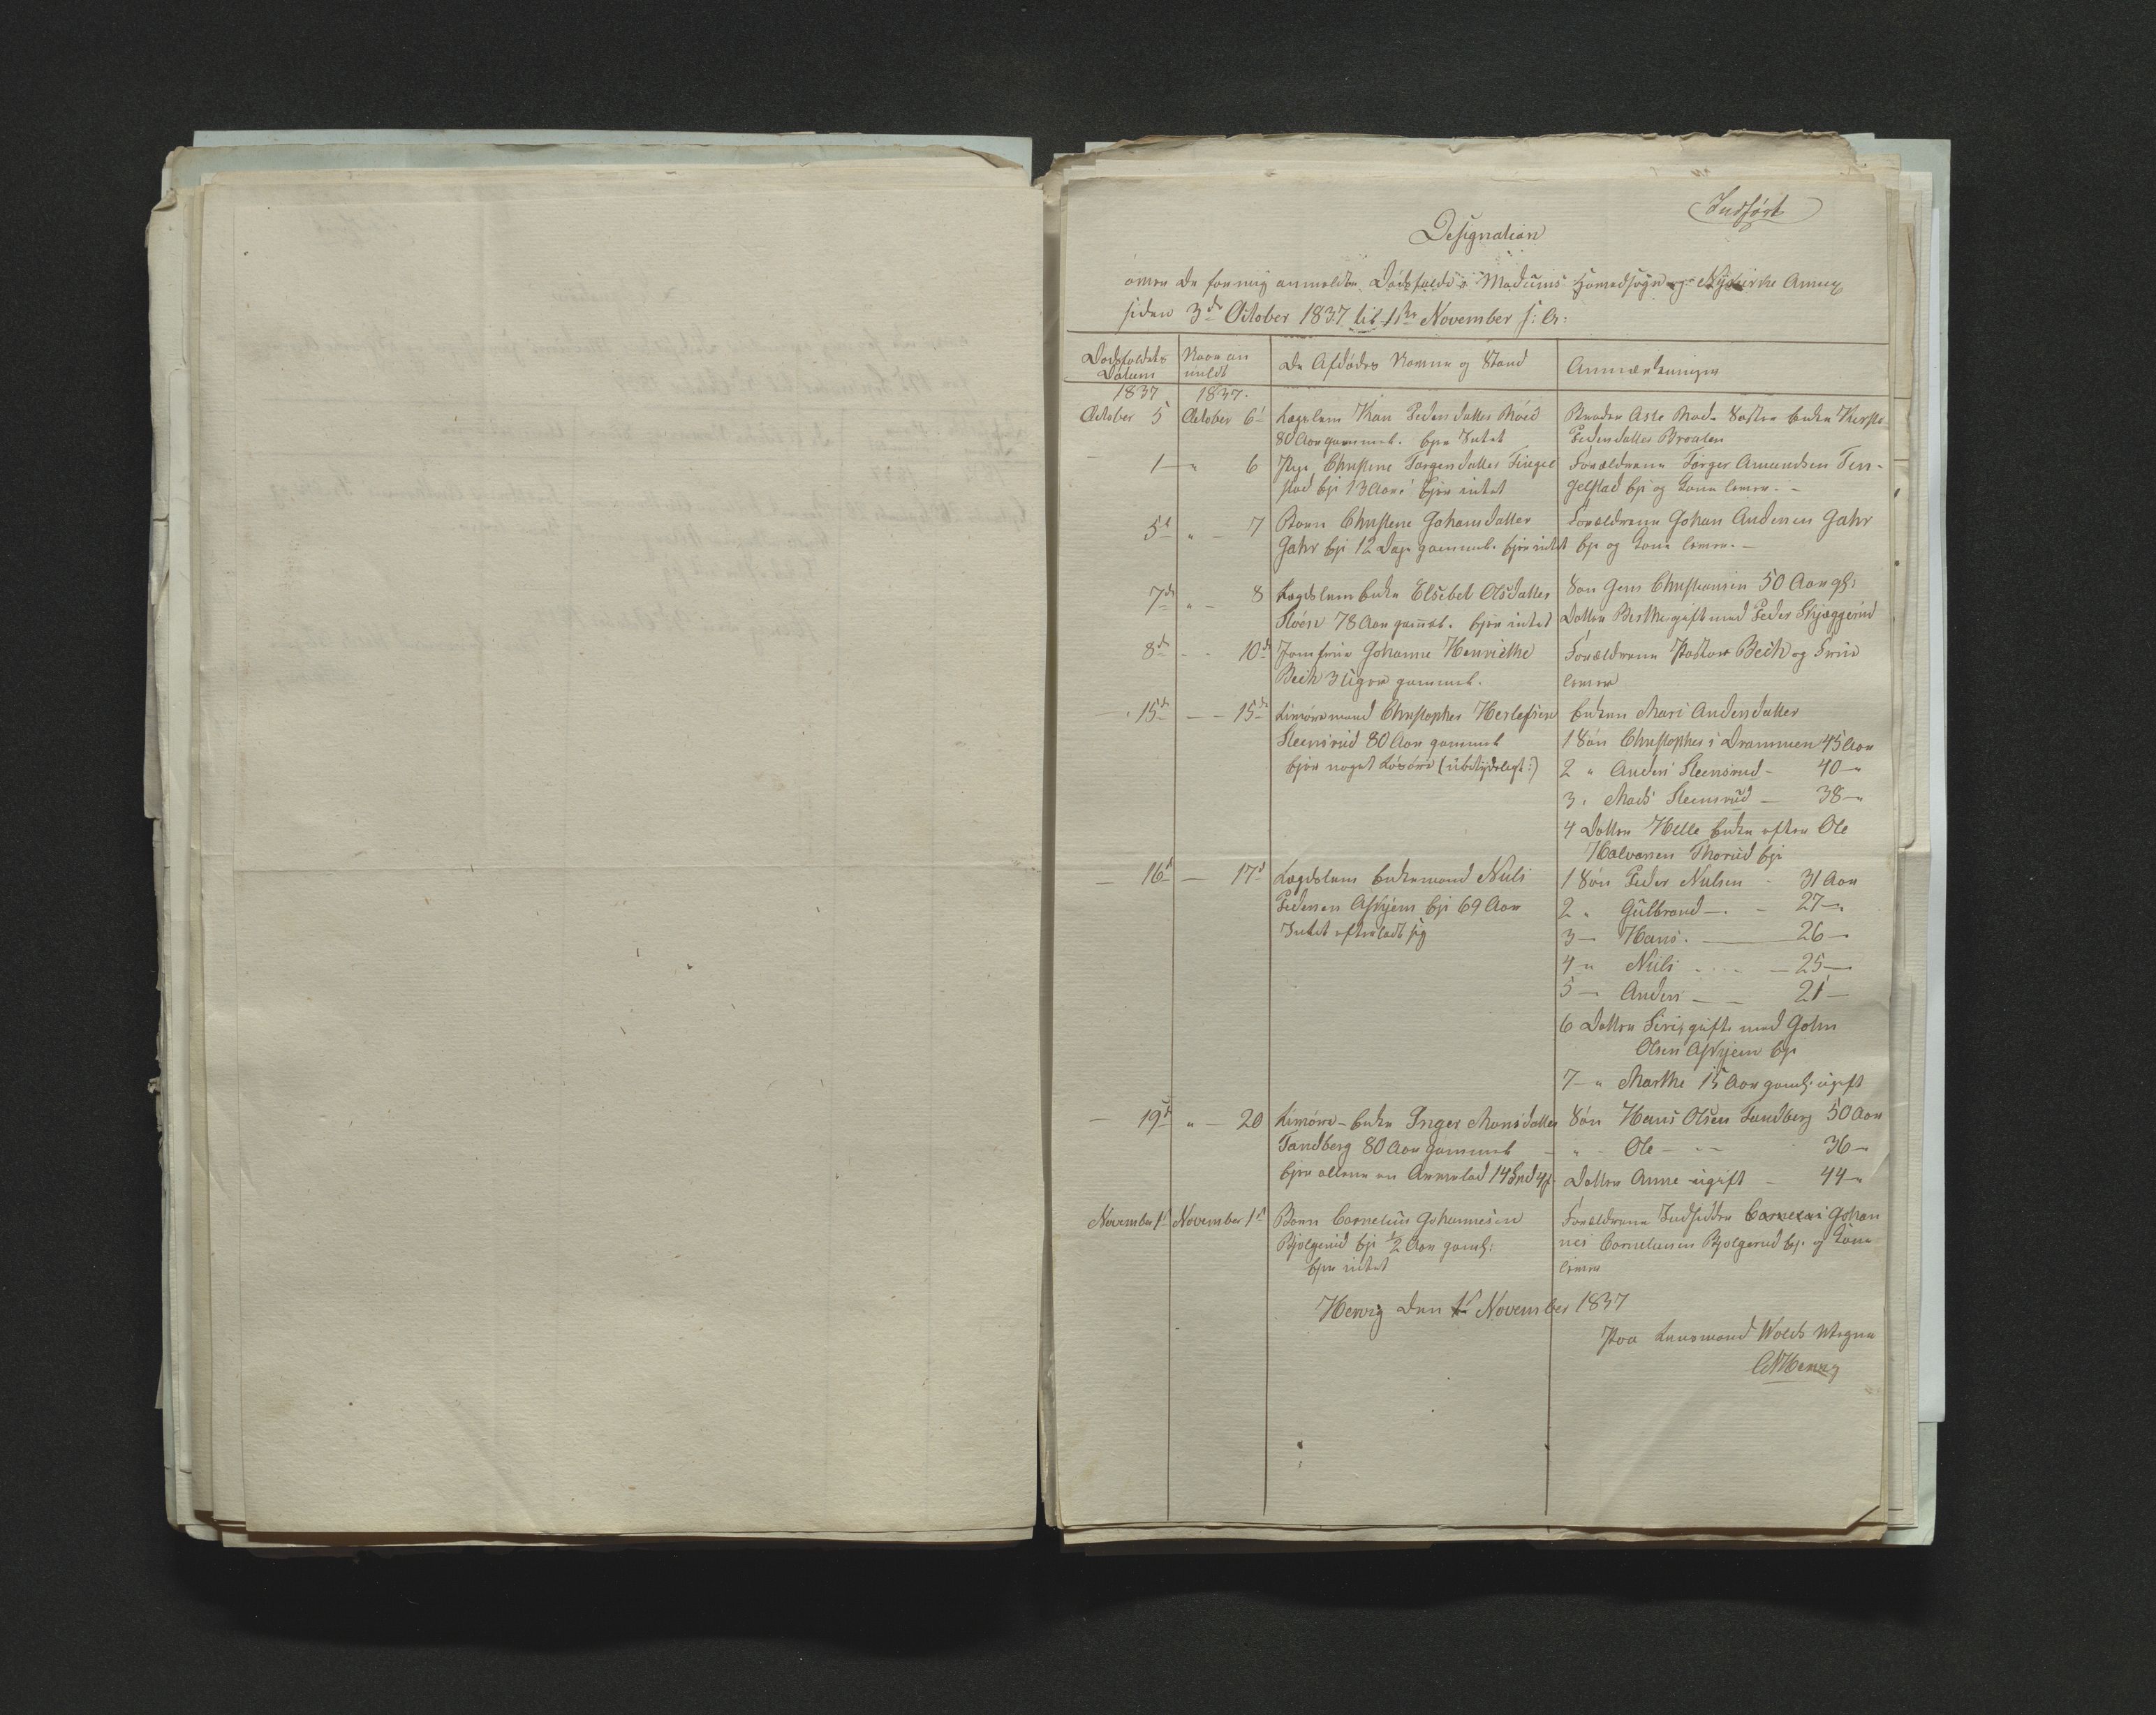 Indført
Designation
over de for mig anmeldte Dødsfald i Modums Hovedsogn og Nykirke Annex
siden 3de October 1837 til 1ste November s: A:
Dødsfaldets Datum
Naar anmeldt
De Afdødes Navne og Stand
Anmærkninger
1837 1837.
October 5 October 6
Lægdslem Kari Pedersdatter
80 Aar gammel. Ejer Intet
Broder Asle Søster Enke
Pedersdatter Braaten
1 " 6
Pige Christene Torgersdatter Tingel
stad eje 13 Aar: Ejer intet
Forældrene Torger Amundsen Tin-
gelstad eje og Kone lever. -
5te " - 7
Barn Christene Johansdatter
Jahr eje 12 Dage gammel. Ejer intet
Forældrene Johan Andersen Jahr
eje og Kone lever. -
7de " - 8
Lægdslem Enke Elsebet Olsdatter
78 Aar gam̄el. Ejer intet
Søn Jens Christiansen 50 Aar gl:
Datter Berthe gift med Peder Skjæggerud
8de - - 10de
Jomfrue Johanne Henriethe
Bech 3 Uger gammel.
Forældrene Pastor Bech og Frue
lever
15de - - 15de
Livøremand Christopher Herlefsen
Steensrud 80 Aar gammel
Ejer noget Løsøre (ubetydeligt:)
Enken Mari Andersdatter
1 Søn Christopher i Drammen 45 Aar
2 " Anders Steensrud - 40 - "
3 " Mads Steensrud - 38 - "
4 Datter Helle Enke efter Ole
Halvorsen Thorud eje
- 16de - 17de
Lægdslem Enkemand Niels
Pedersen Askjem eje 69 Aar
Intet efterladt sig
1 Søn Peder Nielsen - 31 Aar
2 " Gulbrand - - 27 - "
3 - Hans. - 26 -
4 - " Niels - - 25 -
5 - Anders - - 21 -
6 Datter Siri, gift med John
Olsen Askjem eje
7 - " Marthe 15 Aar gaml: ugift
- 19de " - 20
Livøre-Enke Inger Monsdatter
Tandberg 80 Aar gammel
Ejer allene en
Søn Hans Olsen Tandberg 50 Aar
- " - Ole - - 36 -
Datter Anne ugift - 44 - "
November 1ste November 1ste
Barn Cornelius Johannesen
Bjølgerud eje 1/2 Aar gaml:
Ejer intet
Forældrene Indsidder Johan
nes Corneliusen Bjølgerud eje og Kone
lever
Hervig den 1te November 1837
Paa Lensmand Wolds Vegne